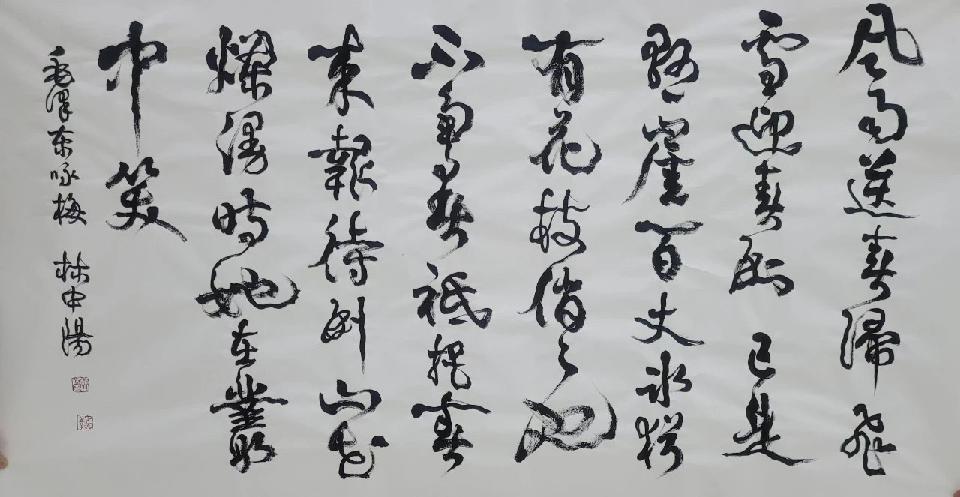 风雨送春歸飛
雪迎春到 已是
懸崖百丈冰犹
有花枝俏 俏也
不爭春祇把春
来報待到山花
爛漫時她在叢
中笑
毛澤东咏梅 林申陽